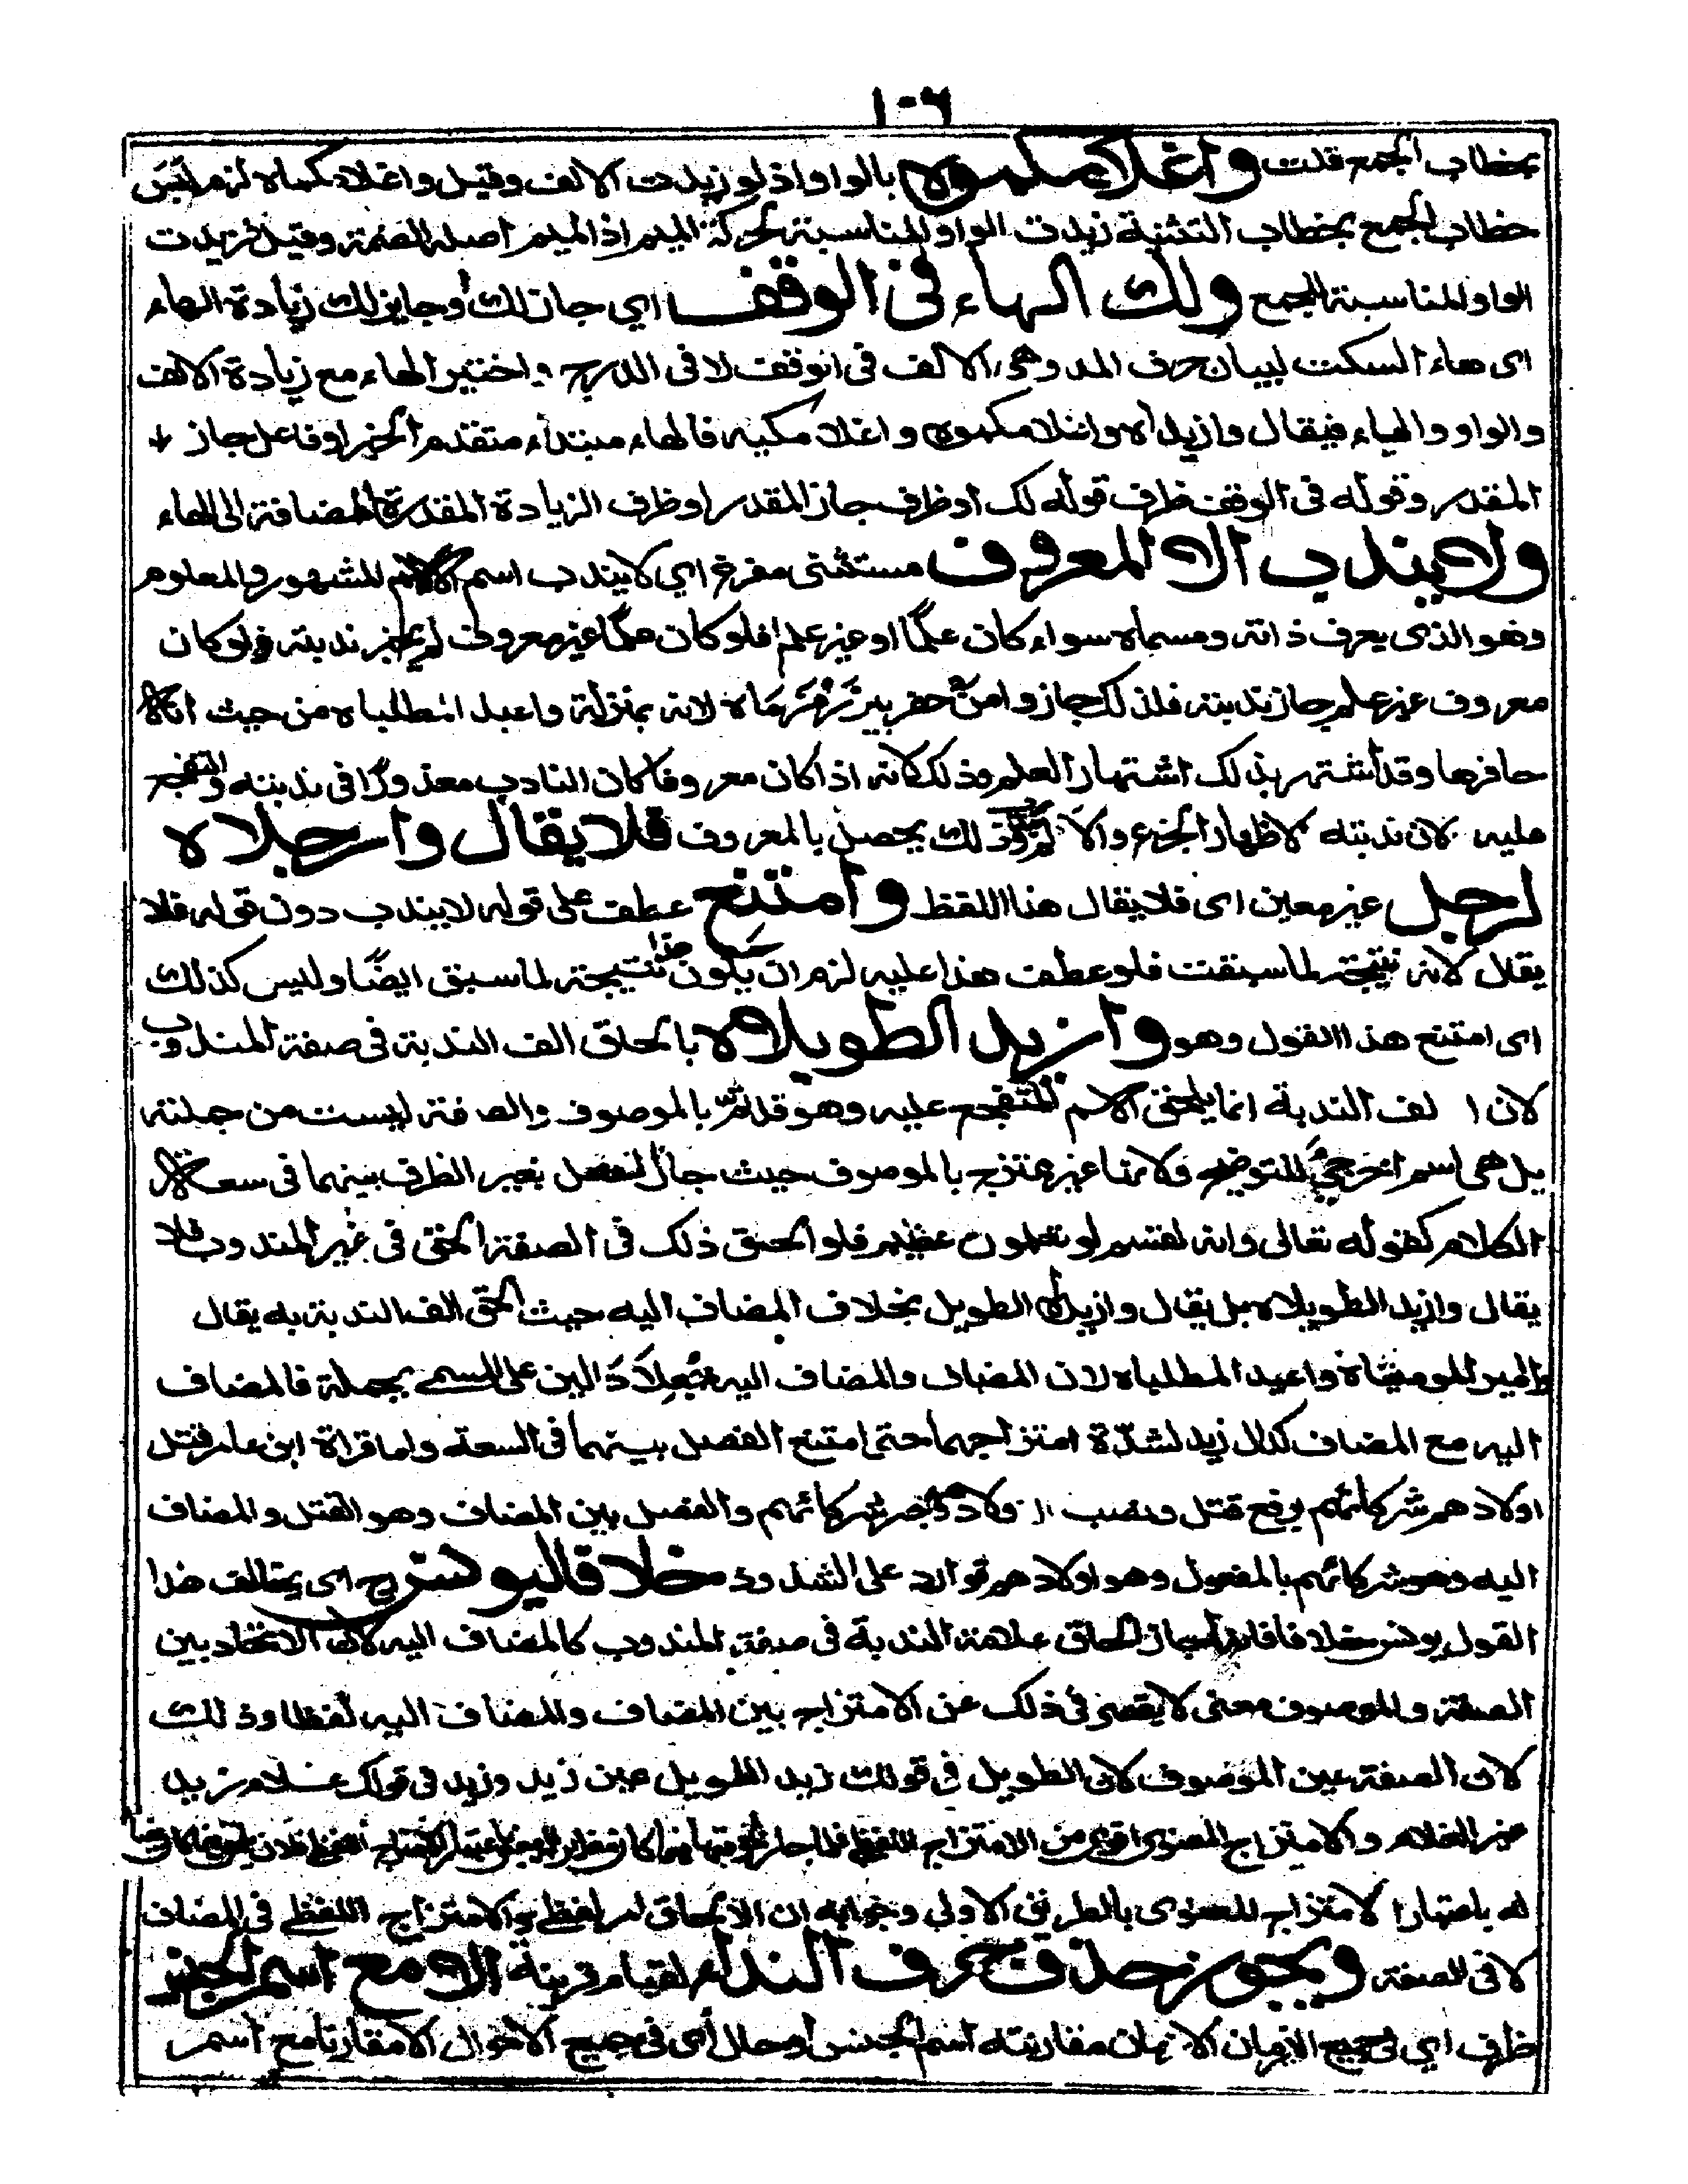 ١٠٦
بخطاب الجمع قلت واغلامكموه بالواو اذ لو زيدت الالف وقيل واغلامكماه لزم لبس
خطاب الجمع بخطاب التثنية زيدت الواو لمناسبة لحركة الميم اذ الميم اصله الضمة وقيل زيدت
الواو لمناسبة الجمع ولك الهاء فى الوقف اي جاز لك أو جايز لك زيادة الهاء
اى هاء السكت لبيان حرف المد وهى الالف فى الوقف لا فى الدرج واختير الهاء مع زيادة الالف
والواو والياء فيقال وازيداه واغلامكموه واغلامكيه فالهاء مبتداء متقدم الخبر او فاعل جاز
المقدر وقوله فى الوقف ظرف قوله لك او ظرف جاز المقدر او ظرف الزيادة المقدرة المضافة الى الهاء
ولا يندب الا المعروف مستثنى مفرغ اي لا يندب اسم الا الاسم المشهور والمعلوم
وهو الذى يعرف ذاته ومسماه سواء كان علمًا او غير علم فلو كان علمًا غير معروف لم يجز ندبته ولو كان
معروف غير علم جاز ندبته فلذلك جاز وامن حفر بير زمزماه لانه بمنزلة واعبد المطلباه من حيث انه
حافرها وقد أشتهر بذلك اشتهار العلم وذلك لانه اذا كان معروفا كان النادب معذورًا فى ندبته والتفجع
عليه لان ندبته لاظهار الجزع والالم وذلك يحصل بالمعروف فلا يقال وارجلاه
لرجل غير معين اى فلا يقال هذا اللفظ وامتنع عطف على قوله لا يندب دون قوله فلا
يقال لانه نتيجة لما سبقت فلو عطف هذا عليه لزم ان يكون هذا نتيجة لما سبق ايضًا وليس كذلك
اى امتنع هذا القول وهو وازيد الطويلاه بالحاق الف الندبة فى صفة المندوب
لان الف الندبة انما يلحق الاسم المتفجع عليه وهو قد تم بالموصوف والصفة ليست من جملته
بل هى اسم اخر جئ للتوضيح ولانها غير ممتزج بالموصوف حيث جاز الفصل بغير الظرف بينهما فى سعة
الكلام كقوله تعالى وانه لقسم لو تعلمون عظيم فلو الحق ذلك فى الصفة الحق فى غير المندوب فلا
يقال وازيد الطويلاه بل يقال وازيداه الطويل بخلاف المضاف اليه حيث الحق الف الندبة به يقال
وامير المومنيناه واعبد المطلباه لان المضاف والمضاف اليه جعلا دالين على المسمى بجملة فالمضاف
اليه مع المضاف كدال زيد لشدّة امتزاجهما حتى امتنع الفصل بينهما فى السعة واما قراة ابن عامر قتل
اولادهم شركائهم برفع قتل ونصب الاولاد وجر شركائهم والفصل بين المضاف وهو القتل والمضاف
اليه وهو شركائهم بالمفعول وهو اولادهم فوارد على الشذوذ خلافا ليونس اى يخالف هذا
القول يونس خلافا فانه أجاز الحاق علامة الندبة فى صفة المندوب كالمضاف اليه لان الاتحاد بين
الصفة والموصوف معنى لا يقصر فى ذلك عن الامتزاج بين المضاف والمضاف اليه لفظا وذلك
لان الصفة عين الموصوف لان الطويل فى قولك زيد الطويل عين زيد وزيد فى قولك غلام زيد
غير الغلام والامتزاج المعنوى اقوى من الامتزاج اللفظى
له باعتبار الامتزاج المعنوى بالطريق الاولى وجوابه ان الالحاق امر لفظى والامتزاج اللفظى فى المضاف
لا فى الصفة ويجوز حذف حرف النداء لقيام قرينة الا مع اسم الجنس
ظرف اي فى جميع الازمان الا زمان مقارنته اسم الجنس أو حال أى فى جميع الاحوال الا مقارنا مع اسم